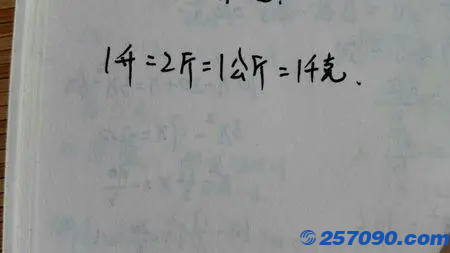 1升=2斤=1公斤=1千克.
257090.com